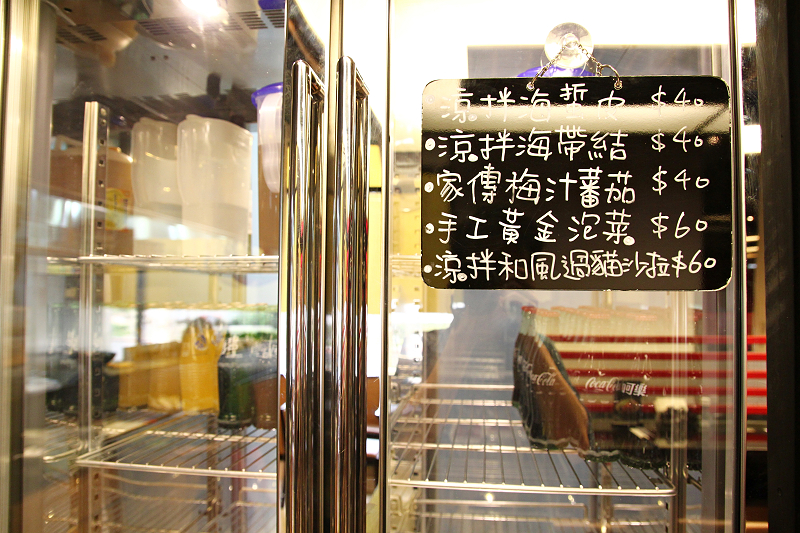 涼拌海蜇皮 $40
•涼拌海帶結 $40
•家傳梅汁蕃茄 $40
•手工黃金泡菜 $60
•涼拌和風過貓沙拉$60
Coca-Cola
Coca-Cola 可樂